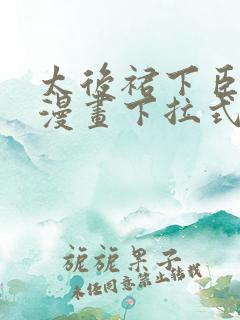 太后裙下臣
漫畫下拉式
旎旎果子
未经同意禁止转载